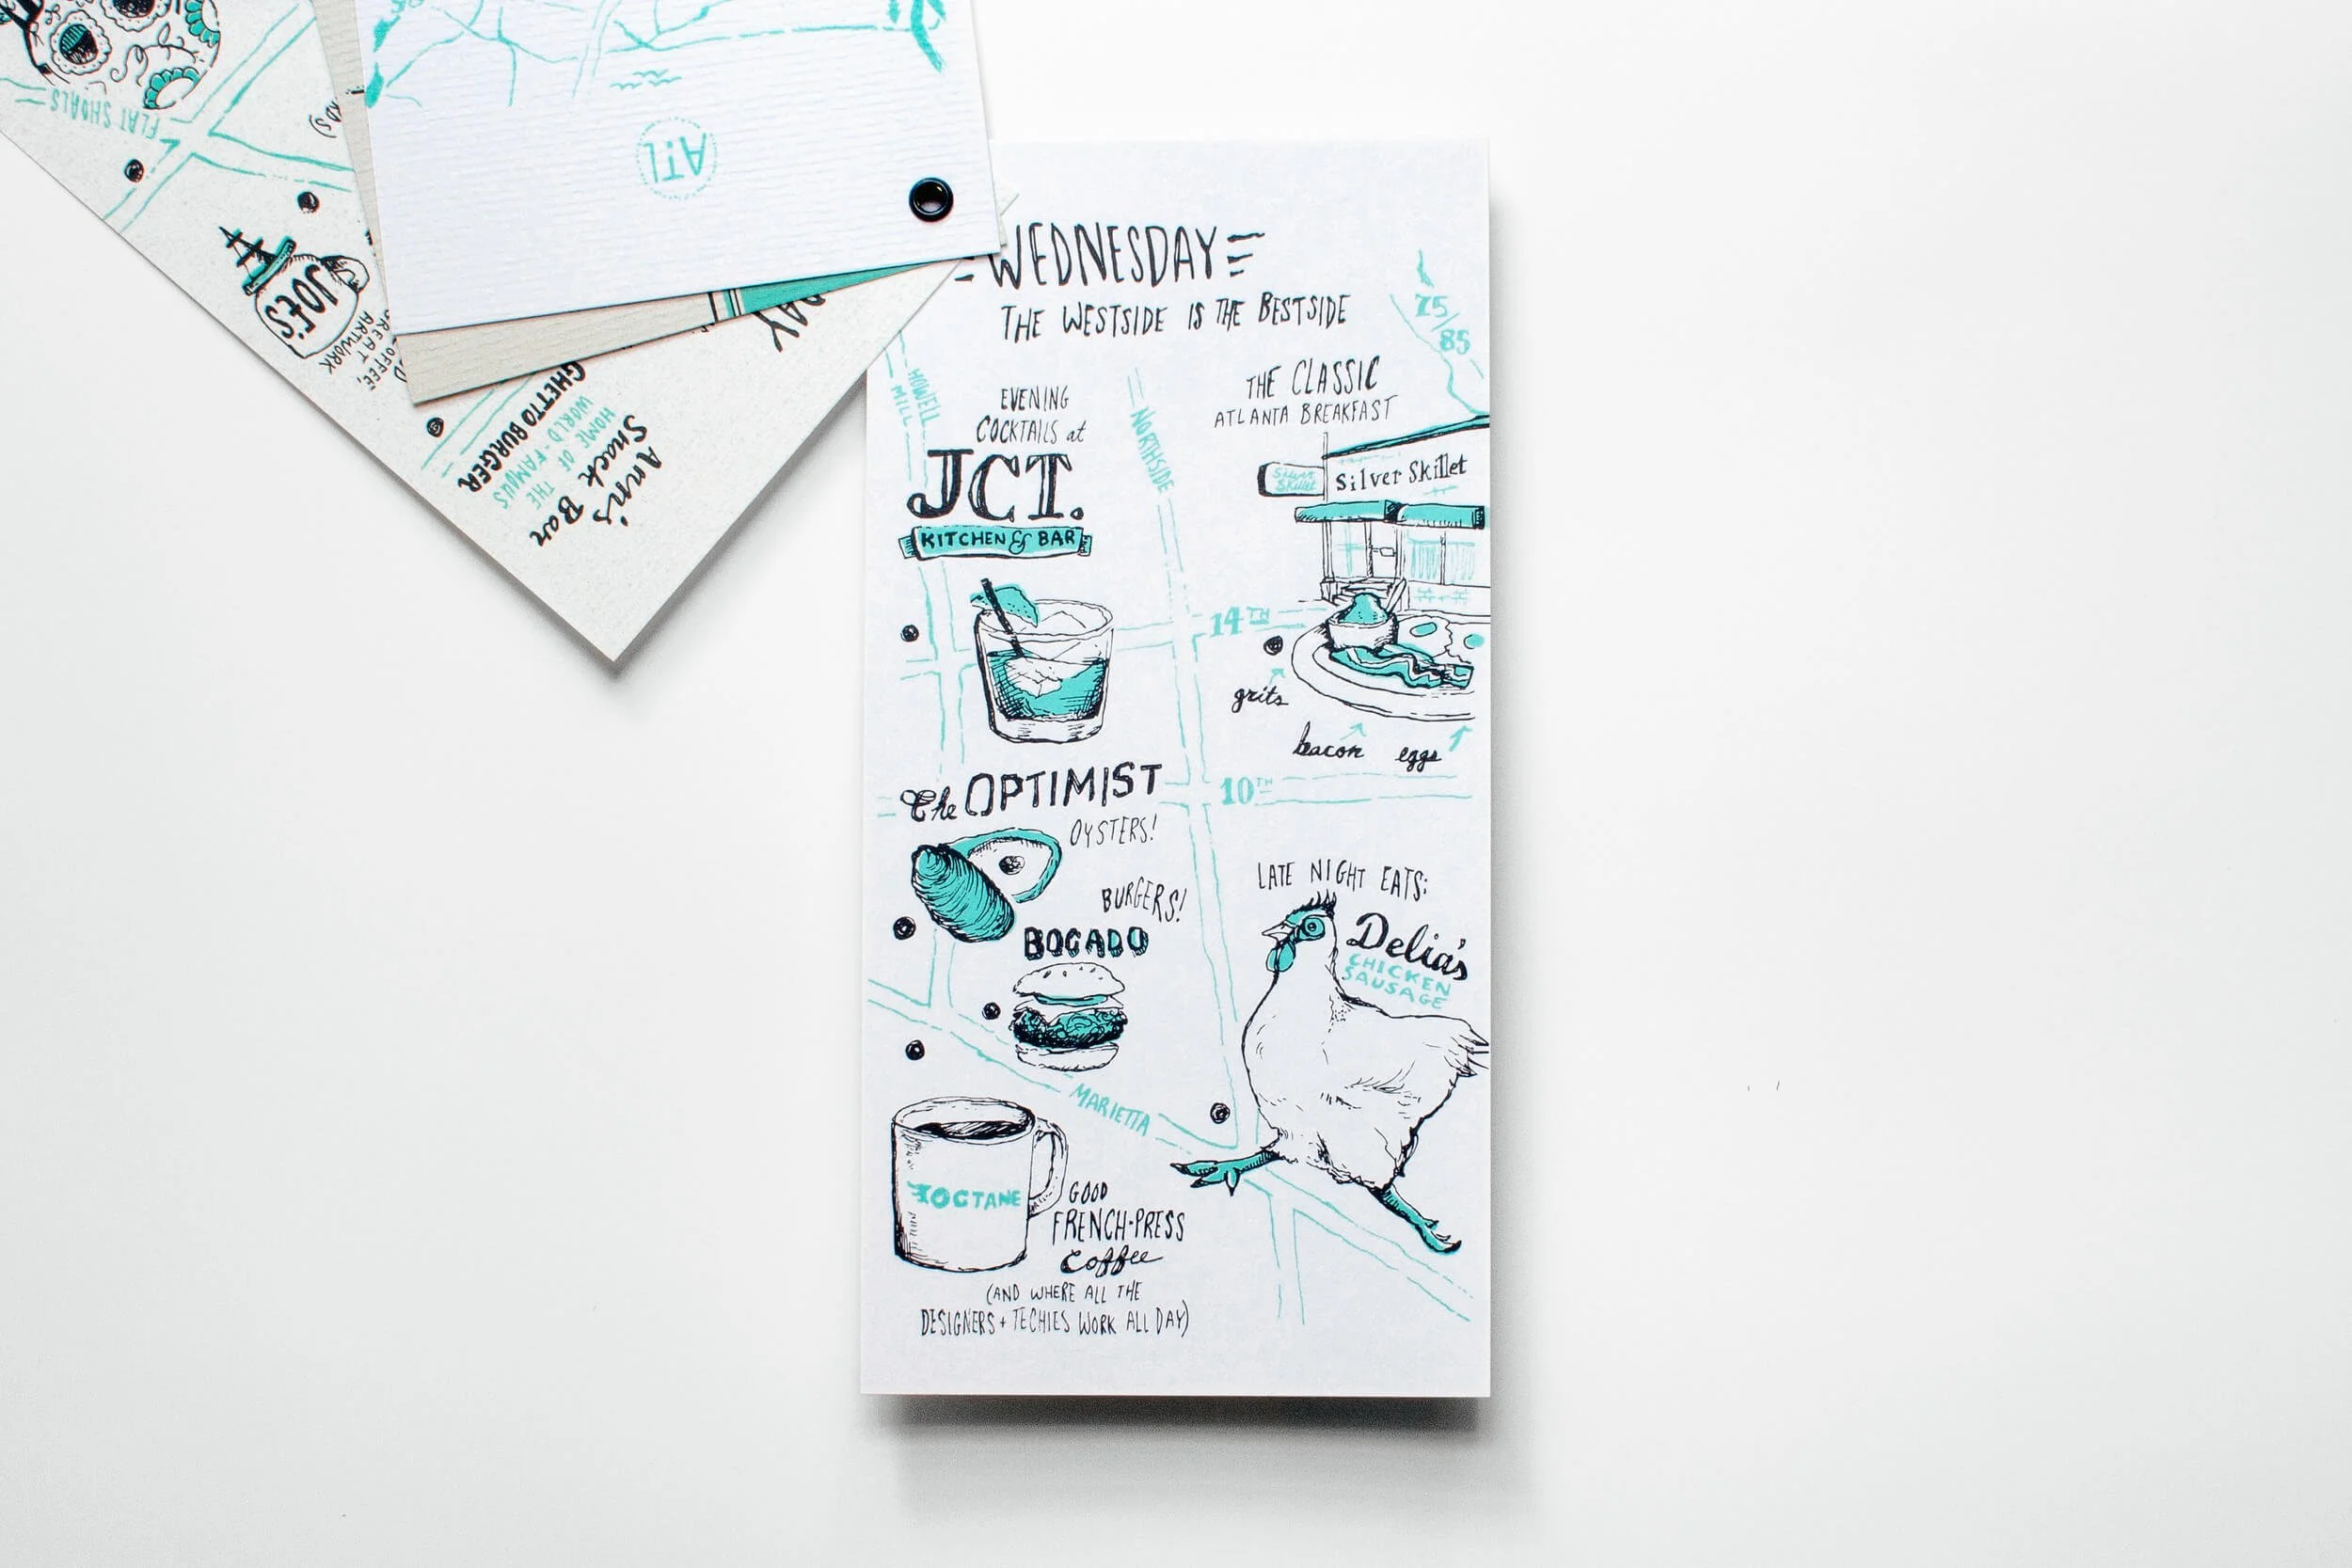 FLAT SHOALS
JOE'S
COFFEE,
GREAT
ARTWORK
ATL
Ann's
Snack Bar
HOME OF THE
WORLD-FAMOUS
GHETTO BURGER
WEDNESDAY
THE WESTSIDE IS THE BESTSIDE
75/85
HOWELL
MILL
NORTHSIDE
EVENING
COCKTAILS at
JCT.
KITCHEN & BAR
THE CLASSIC
ATLANTA BREAKFAST
Silver Skillet
Silver
Skillet
14TH
grits
bacon eggs
The OPTIMIST
OYSTERS!
10TH
BURGERS!
BOCADO
LATE NIGHT EATS:
Delia's
CHICKEN
SAUSAGE
MARIETTA
OCTANE
GOOD
FRENCH-PRESS
Coffee
(AND WHERE ALL THE
DESIGNERS + TECHIES WORK ALL DAY)